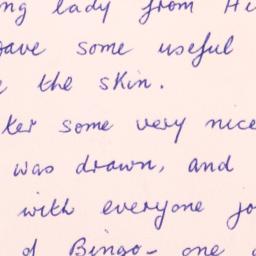 ng lady from Hi
gave some useful
the skin.
ter some very nice
was drawn, and
with everyone jo
of Bingo - one